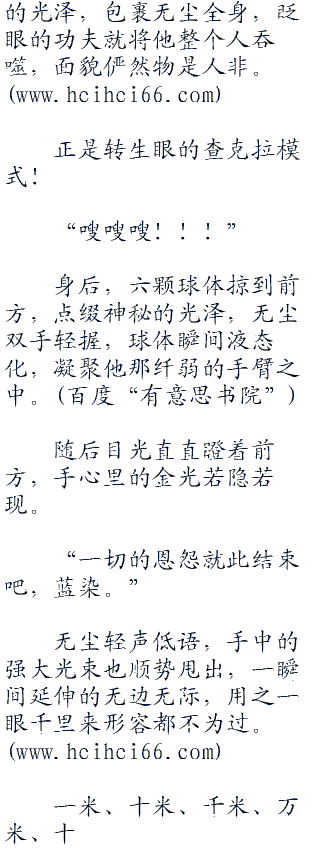 的光泽，包裹无尘全身，眨
眼的功夫就将他整个人吞
噬，面貌俨然物是人非。
(www.hcihci66.com)
正是转生眼的查克拉模
式！
“嗖嗖嗖！！！”
身后，六颗球体掠到前
方，点缀神秘的光泽，无尘
双手轻握，球体瞬间液态
化，凝聚他那纤弱的手臂之
中。(百度“有意思书院”)
随后目光直直瞪着前
方，手心里的金光若隐若
现。
“一切的恩怨就此结束
吧，蓝染。”
无尘轻声低语，手中的
强大光束也顺势甩出，一瞬
间延伸的无边无际，用之一
眼千里来形容都不为过。
(www.hcihci66.com)
一米、十米、千米、万
米、十